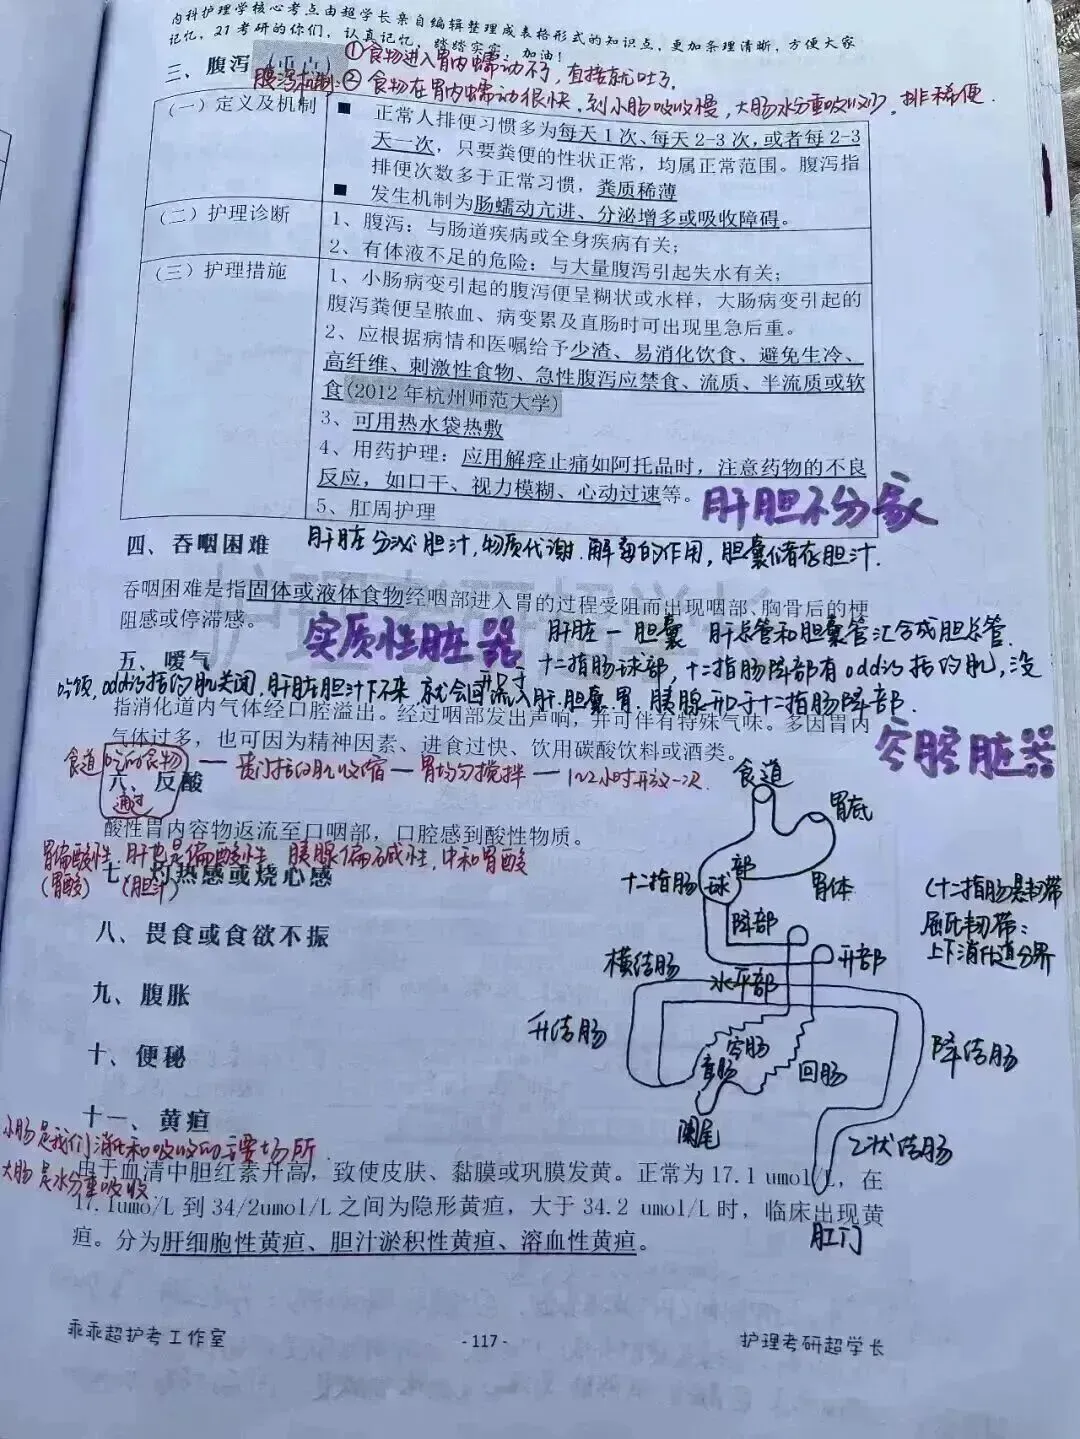 内科护理学核心考点由超学长亲自编辑整理成表格形式的知识点,更加条理清晰,方便大家
记忆,21考研的你们,认真记忆,踏踏实实,加油!
①食物进入胃内蠕动不了,直接就吐了
三、腹泻(重点)
腹泻机制:②食物在胃内蠕动很快,到小肠吸收慢,大肠水分重吸收少,排稀便.
(一)定义及机制
■ 正常人排便习惯多为每天1次、每天2-3次,或者每2-3
天一次,只要粪便的性状正常,均属正常范围。腹泻指
排便次数多于正常习惯,粪质稀薄
■ 发生机制为肠蠕动亢进、分泌增多或吸收障碍。
(二)护理诊断
1、腹泻:与肠道疾病或全身疾病有关;
2、有体液不足的危险:与大量腹泻引起失水有关;
(三)护理措施
1、小肠病变引起的腹泻便呈糊状或水样,大肠病变引起的
腹泻粪便呈脓血、病变累及直肠时可出现里急后重。
2、应根据病情和医嘱给予少渣、易消化饮食、避免生冷、
高纤维、刺激性食物、急性腹泻应禁食、流质、半流质或软
食(2012年杭州师范大学)
3、可用热水袋热敷
4、用药护理:应用解痉止痛如阿托品时,注意药物的不良
反应,如口干、视力模糊、心动过速等。
5、肛周护理
肝胆不分家
四、吞咽困难
肝脏分泌胆汁,物质代谢.解毒的作用,胆囊储存胆汁.
吞咽困难是指固体或液体食物经咽部进入胃的过程受阻而出现咽部、胸骨后的梗
阻感或停滞感。
护理考研超学长
实质性脏器
肝脏一胆囊 肝总管和胆囊管汇合成胆总管.
五、嗳气
开口于十二指肠球部,十二指肠降部有odd括约肌,没
吃饭,odd括约肌关闭,肝脏胆汁下不来,就会回流入肝.胆囊.胃.胰腺开口于十二指肠降部.
指消化道内气体经口腔溢出。经过咽部发出声响,并可伴有特殊气味。多因胃内
气体过多,也可因为精神因素、进食过快、饮用碳酸饮料或酒类。
空腔脏器
食道 吃的食物 — 贲门括约肌收缩 — 胃均匀搅拌 — 1~2小时开放一次.
通过
六、反酸
酸性胃内容物返流至口咽部,口腔感到酸性物质。
胃偏酸性,肝也是偏酸性,胰腺偏碱性,中和胃酸
(胃酸) (胆汁)
七、灼热感或烧心感
八、畏食或食欲不振
九、腹胀
十、便秘
食道
胃底
十二指肠 球部
胃体
降部
升部
水平部
(十二指肠悬韧带
屈氏韧带:
上下消化道分界
横结肠
升结肠
空肠
盲肠
回肠
降结肠
阑尾
乙状结肠
肛门
十一、黄疸
小肠是我们消化和吸收的主要场所
大肠是水分重吸收
由于血清中胆红素升高,致使皮肤、黏膜或巩膜发黄。正常为17.1 umol/L,在
17.1umo/L到34/2umol/L之间为隐形黄疸,大于34.2 umol/L时,临床出现黄
疸。分为肝细胞性黄疸、胆汁淤积性黄疸、溶血性黄疸。
乖乖超护考工作室
- 117 -
护理考研超学长